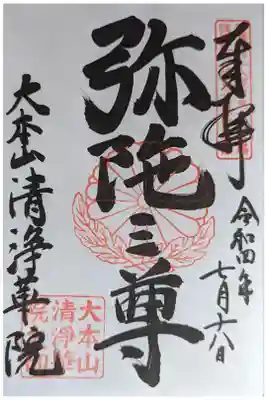 奉拝
令和四年
七月十八日
弥陀三尊
大本山清浄華院
大本山
清浄華
院印